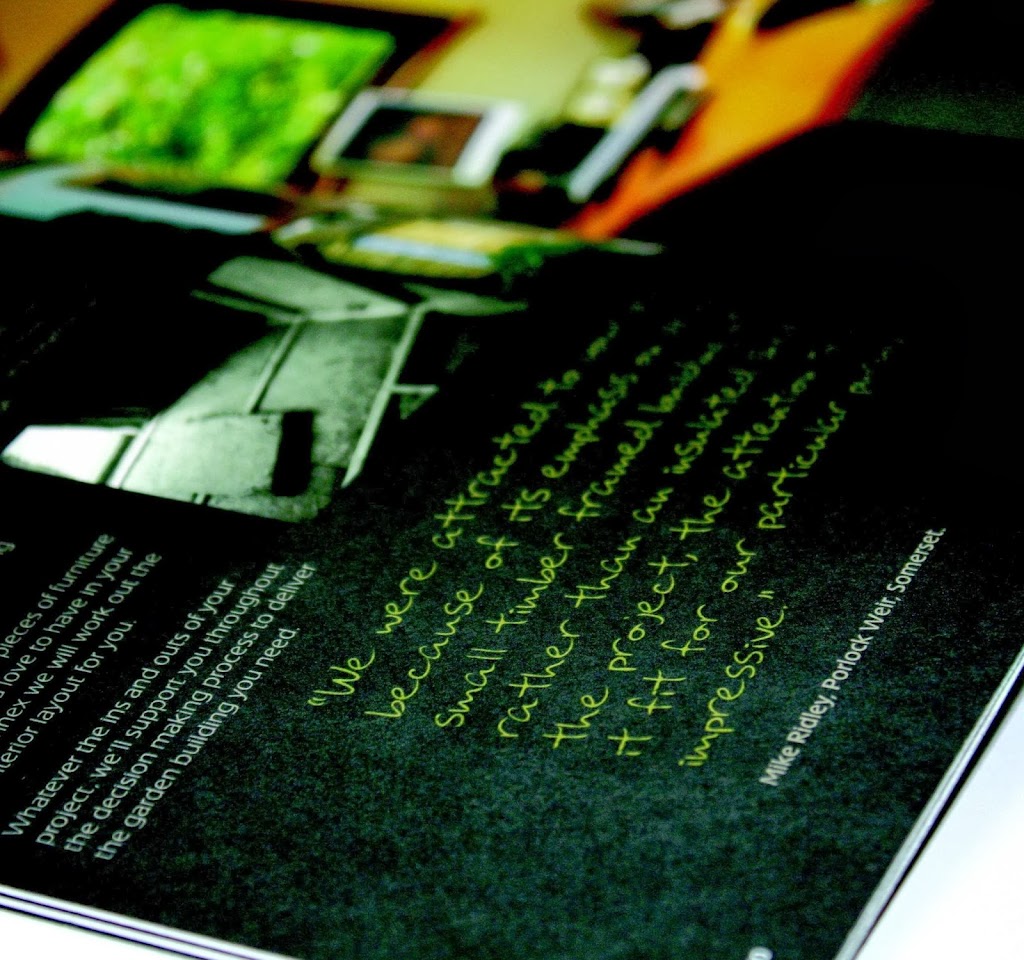 pieces of furniture
love to have in your
we will work out the
layout for you.
Whatever the ins and outs of your
project, we'll support you throughout
the decision making process to deliver
the garden building you need.
"We were attracted to
because of its emphasis
small timber framed
rather than an insulated
the project, the attention
it fit for our particular
impressive."
Mike Ridley, Porlock Weir, Somerset.